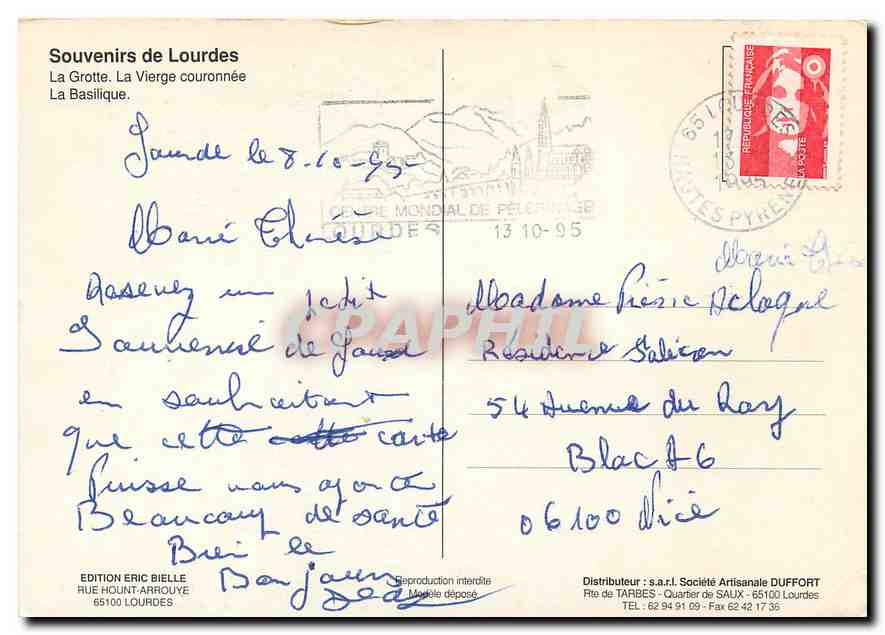 Souvenirs de Lourdes
La Grotte. La Vierge couronnée
La Basilique.
le 8-10-95
Marie Thérèse
un petit
de
en souhaitant
que cette cette carte
Puisse vous
Beaucoup de santé
Bien le
Bonjour
CENTRE MONDIAL DE PELERINAGE
LOURDES 13 10-95
65 LOURDES
1995
HAUTES PYRENEES
REPUBLIQUE FRANÇAISE
LA POSTE
Marie
Madame
Résidence
54 Avenue du Ray
Bloc A6
06100 Nice
CPAPHIL
EDITION ERIC BIELLE
RUE HOUNT-ARROUYE
65100 LOURDES
Reproduction interdite
Modèle déposé
Distributeur : s.a.r.l. Société Artisanale DUFFORT
Rte de TARBES - Quartier de SAUX - 65100 Lourdes
TEL : 62 94 91 09 - Fax 62 42 17 36